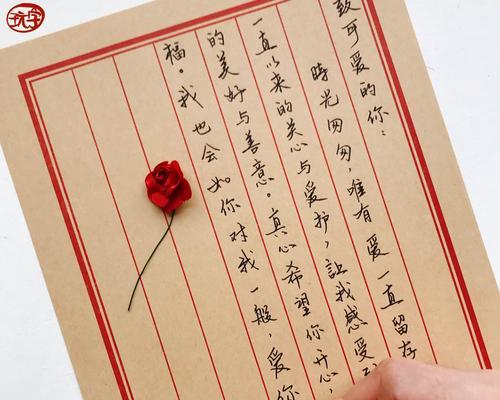 致可爱的你：
時光匆匆，唯有爱一直留存
一直以来的关心与爱护，讓我感受
的美好与善意。真心希望你开心，
福。我也会如你对我一般，爱你